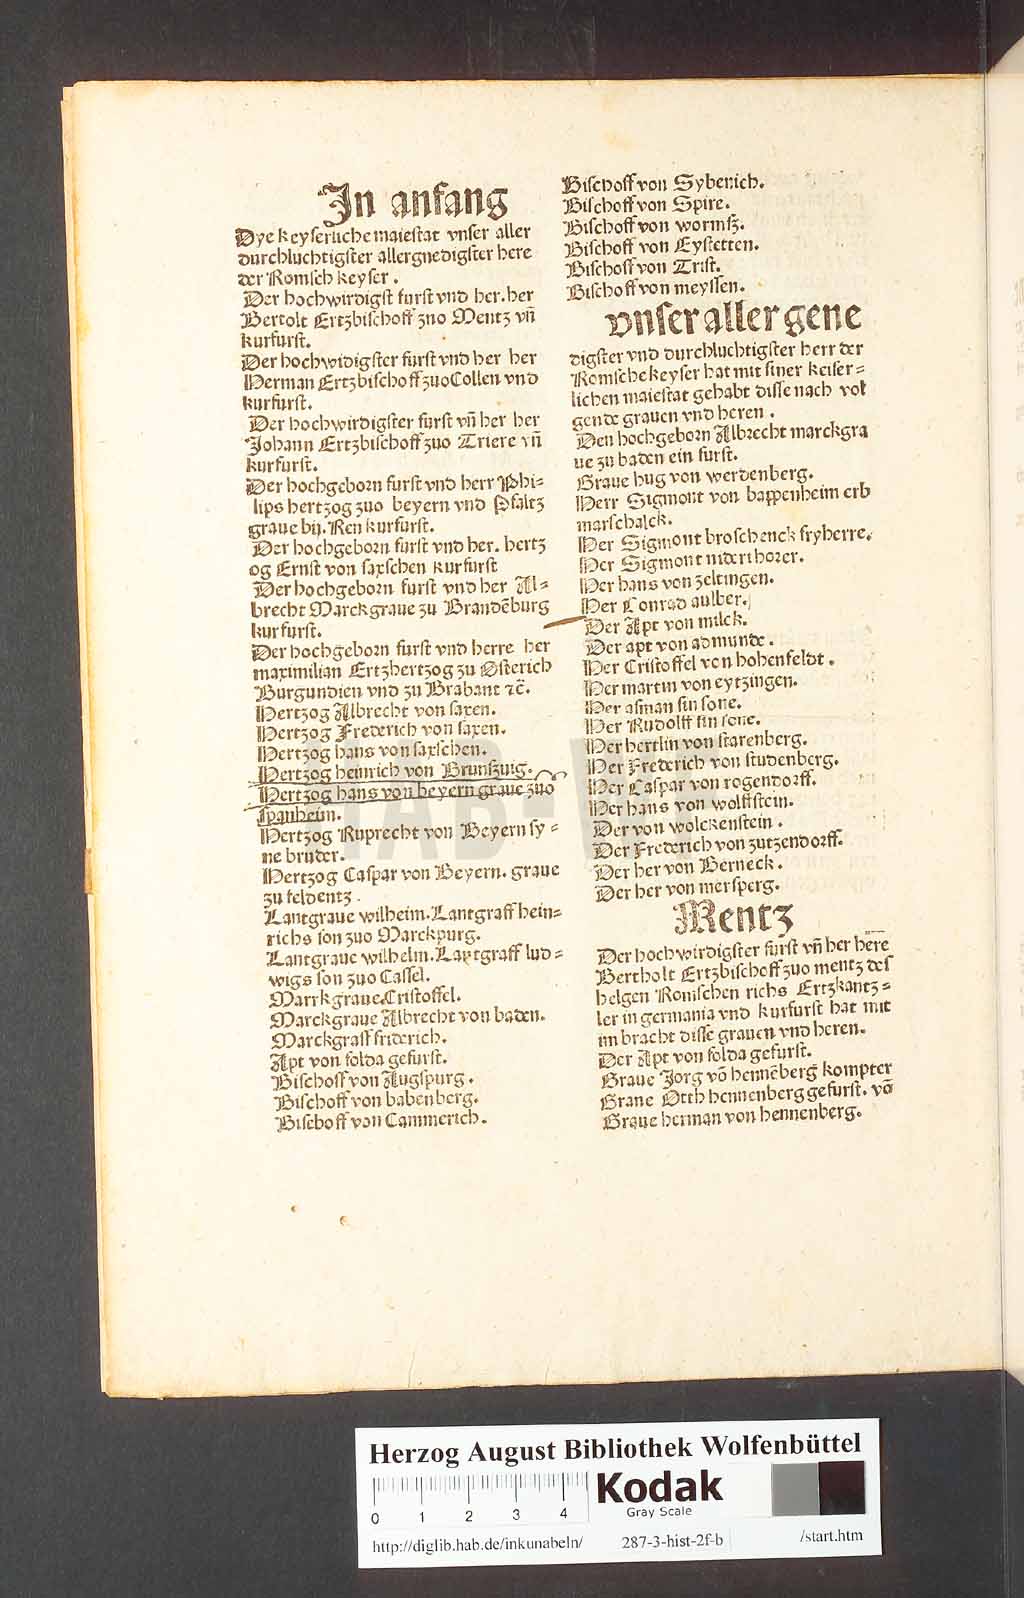 In anfang
Dye keyserliche maiestat vnser aller
durchluchtigster allergnedigster here
der Romsch keyser.
Der hochwirdigst furst vnd her. her
Bertolt Ertzbischoff zuo Mentz vn̄
kurfurst.
Der hochwidigster furst vnd her her
Herman Ertzbischoff zuo Collen vnd
kurfurst.
Der hochwirdigster furst vn̄ her her
Johann Ertzbischoff zuo Triere vn̄
kurfurst.
Der hochgeborn furst vnd herr Phi=
lips hertzog zuo beyern vnd Pfaltz
graue bij. Ren kurfurst.
Der hochgeborn furst vnd her. hertz
og Ernst von saxschen kurfurst
Der hochgeborn furst vnd her Al=
brecht Marckgraue zu Brandēburg
kurfurst.
Der hochgeborn furst vnd herre her
maximilian Ertzhertzog zu Osterich
Burgundien vnd zu Brabant ꝛc̄.
Hertzog Albrecht von saxen.
Hertzog Frederich von saxen.
Hertzog hans von saxschen.
Hertzog heinrich von Brunszwig.
Hertzog hans von beyern graue zuo
spanheim.
Hertzog Ruprecht von Beyern sy=
ne bruder.
Hertzog Caspar von Beyern. graue
zu feldentz.
Lantgraue wilheim. Lantgraff hein=
richs son zuo Marckpurg.
Lantgraue wilhelm. Lantgraff lud=
wigs son zuo Cassel.
Marrkgraue Cristoffel.
Marckgraue Albrecht von baden.
Marckgraff friderich.
Apt von folda gefurst.
Bischoff von Augspurg.
Bischoff von babenberg.
Bischoff von Cammerich.
Bischoff von Sybenich.
Bischoff von Spire.
Bischoff von wormsz.
Bischoff von Eystetten.
Bischoff von Trist.
Bischoff von meyssen.
vnser aller gene
digster vnd durchluchtigster herr der
Romsche keyser hat mit siner keiser=
lichen maiestat gehabt disse nach vol
gende grauen vnd heren.
Den hochgeborn Albrecht marckgra
ue zu baden ein furst.
Graue hug von werdenberg.
Herr Sigmont von bappenheim erb
marschalck.
Her Sigmont broschenck fryherre.
Her Sigmont niderthorer.
Her hans von zeltingen.
Her Conrad aulber.
Der Apt von milck.
Der apt von admunde.
Her Cristoffel von hohenfeldt.
Her martin von eytzingen.
Her asman sin sone.
Her Rudolff sin sone.
Her hertlin von starenberg.
Her Frederich von studenberg.
Her Caspar von rogendorff.
Her hans von wolffstein.
Der von wolckenstein.
Der Frederich von zutzendorff.
Der her von Berneck.
Der her von mersperg.
Mentz
Der hochwirdigster furst vn̄ her here
Bertholt Ertzbischoff zuo mentz des
helgen Romschen richs Ertzkantz=
ler in germania vnd kurfurst hat mit
im bracht disse grauen vnd heren.
Der Apt von folda gefurst.
Graue Jorg vō hennēberg kompter
Graue Otth hennenberg gefurst. vō
Graue herman von hennenberg.
HAB-W
Herzog August Bibliothek Wolfenbüttel
0 1 2 3 4
Kodak
Gray Scale
http://diglib.hab.de/inkunabeln/ 287-3-hist-2f-b /start.htm